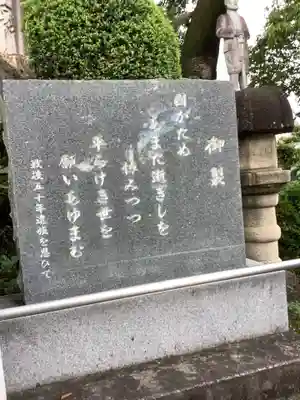 御製
国がため
あまた逝きしを
悼みつつ
平らけき世を
願いあゆまむ
戦後五十年遺族を思ひて